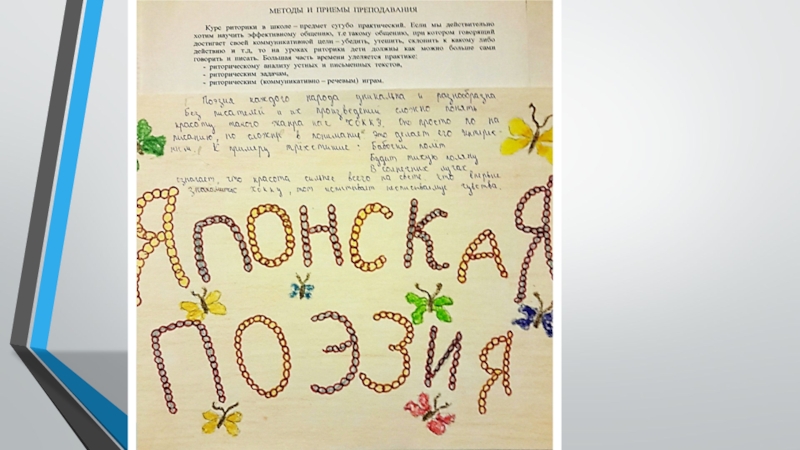 МЕТОДЫ И ПРИЕМЫ ПРЕПОДАВАНИЯ
Курс риторики в школе – предмет сугубо практический. Если мы действительно
хотим научить эффективному общению, т.е такому общению, при котором говорящий
достигает своей коммуникативной цели – убедить, утешить, склонить к какому либо
действию и т.д, то на уроках риторики дети должны как можно больше сами
говорить и писать. Большая часть времени уделяется практике:
- риторическому анализу устных и письменных текстов,
- риторическим задачам,
- риторическим (коммуникативно – речевым) играм.
Поэзия каждого народа уникальна и разнообразна
Без писателей и их произведений сложно понять
красоту такого жанра как хокку. Он просто по на
писанию, но сложнр в понимании это делает его интерес-
К примеру трехстишие: Бабочки полёт
Будит тихую поляну
В солнечных лучах.
что красота сильнее всего на свете. Кто впервые
хокку, тот испытывает чувства.
ЯПОНСКАЯ
ПОЭЗИЯ